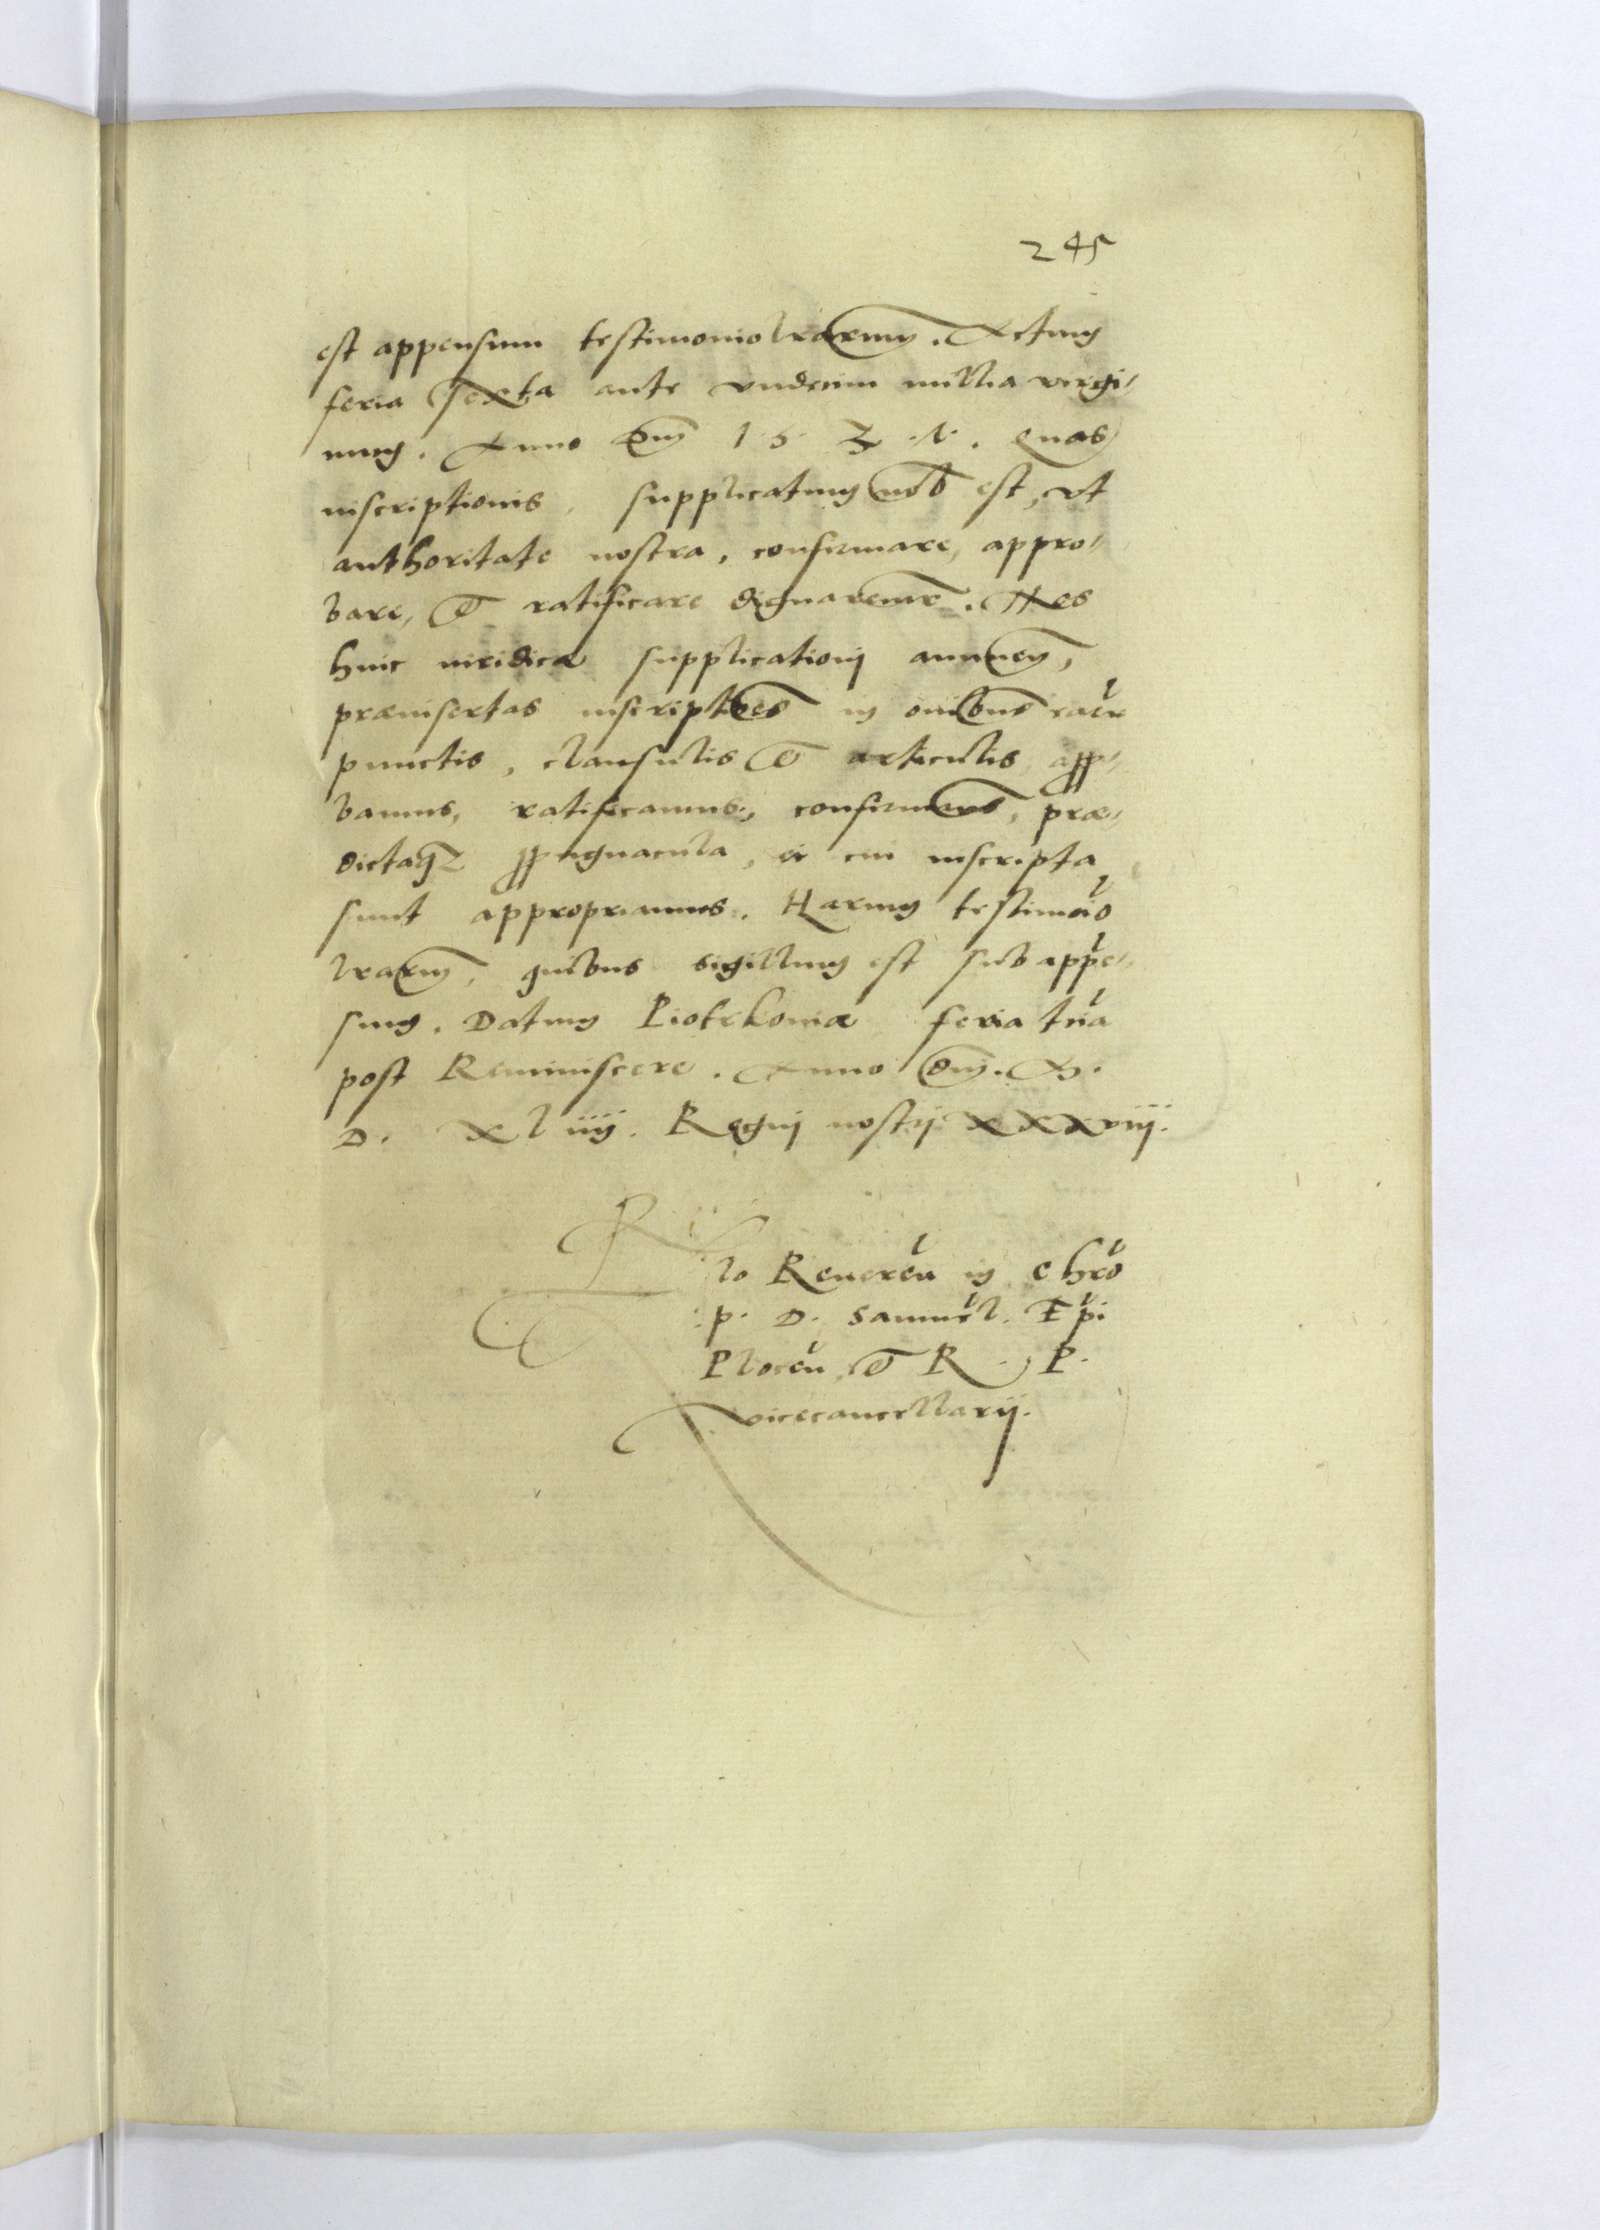 245
est appensum testimonio lrarum. Actum
feria sexta ante vndecim millia virgi-
num. Anno dni 1.5.3.1. Quas
inscriptionis, supplicatum nob est, vt
authoritate nostra, confirmare, appro-
bare, et ratificare dignaremr. Nos
huic iuridicæ supplicationi annuen,
præinsertas inscriptoes in omibus earu
punctis, clausulis et articulis app-
bamus, ratificamus, confirmams, præ-
dictaq3 ppugnacula, ei cui inscripta
sunt appropriamus. Harum testimoio
lrarum, quibus sigillum est subappe-
sum. Datum Piotrkoviæ feria tria
post Reminiscere. Anno dni. M.
D. xl iiij. Regni nostri xxxviij.
Rlo Reueren in Chro
p. D. Samuel. Epi
Plocen et R. P.
vicecancellarij.